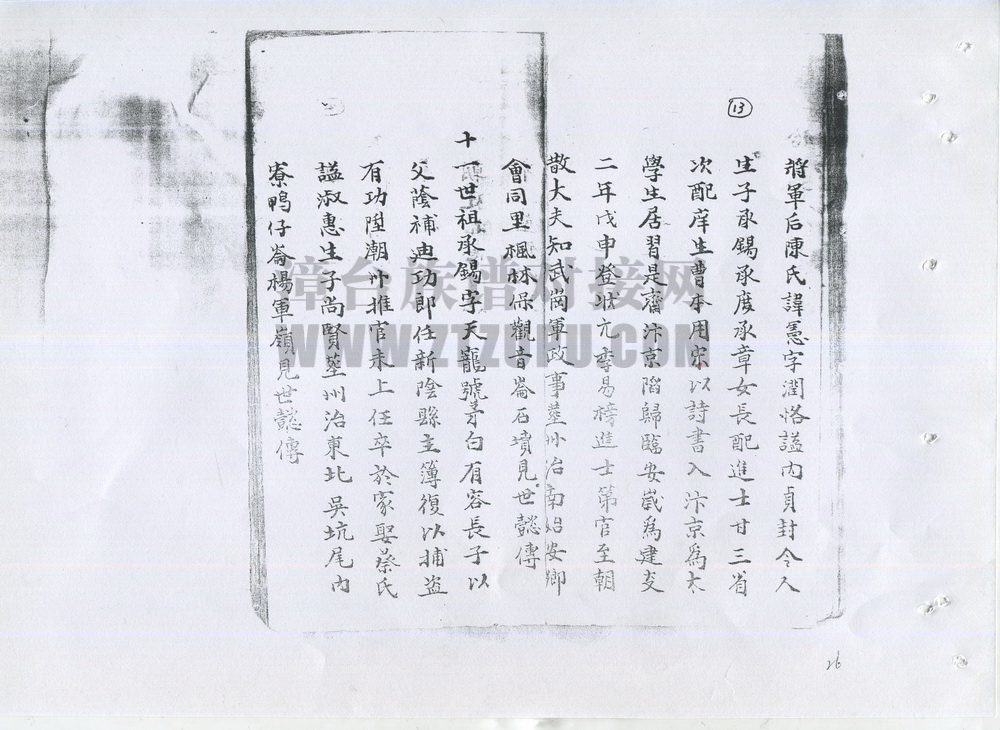 13
將軍后陳氏諱憲字潤恪謚內貞封令人
生子承錫承度承章女長配進士甘三省
次配庠生曹本用宋以詩書入汴京為太
學生居習是齋汴京陷歸臨安歲為建炎
二年戊申登狀元李易榜進士第官至朝
散大夫知武崗軍政事塟州治南始安鄉
會同里楓林保觀音崙石墳見世懿傳
十一世祖承錫字天寵號茅白有容長子以
父蔭補迪功郎任新陰縣主簿復以捕盜
有功陞潮州推官未上任卒於家娶蔡氏
謚淑惠生子尚賢塟州治東北吳坑尾內
寮鴨仔崙楊軍嶺見世懿傳
章台族谱对接网
WWW.ZTZUPU.COM
26